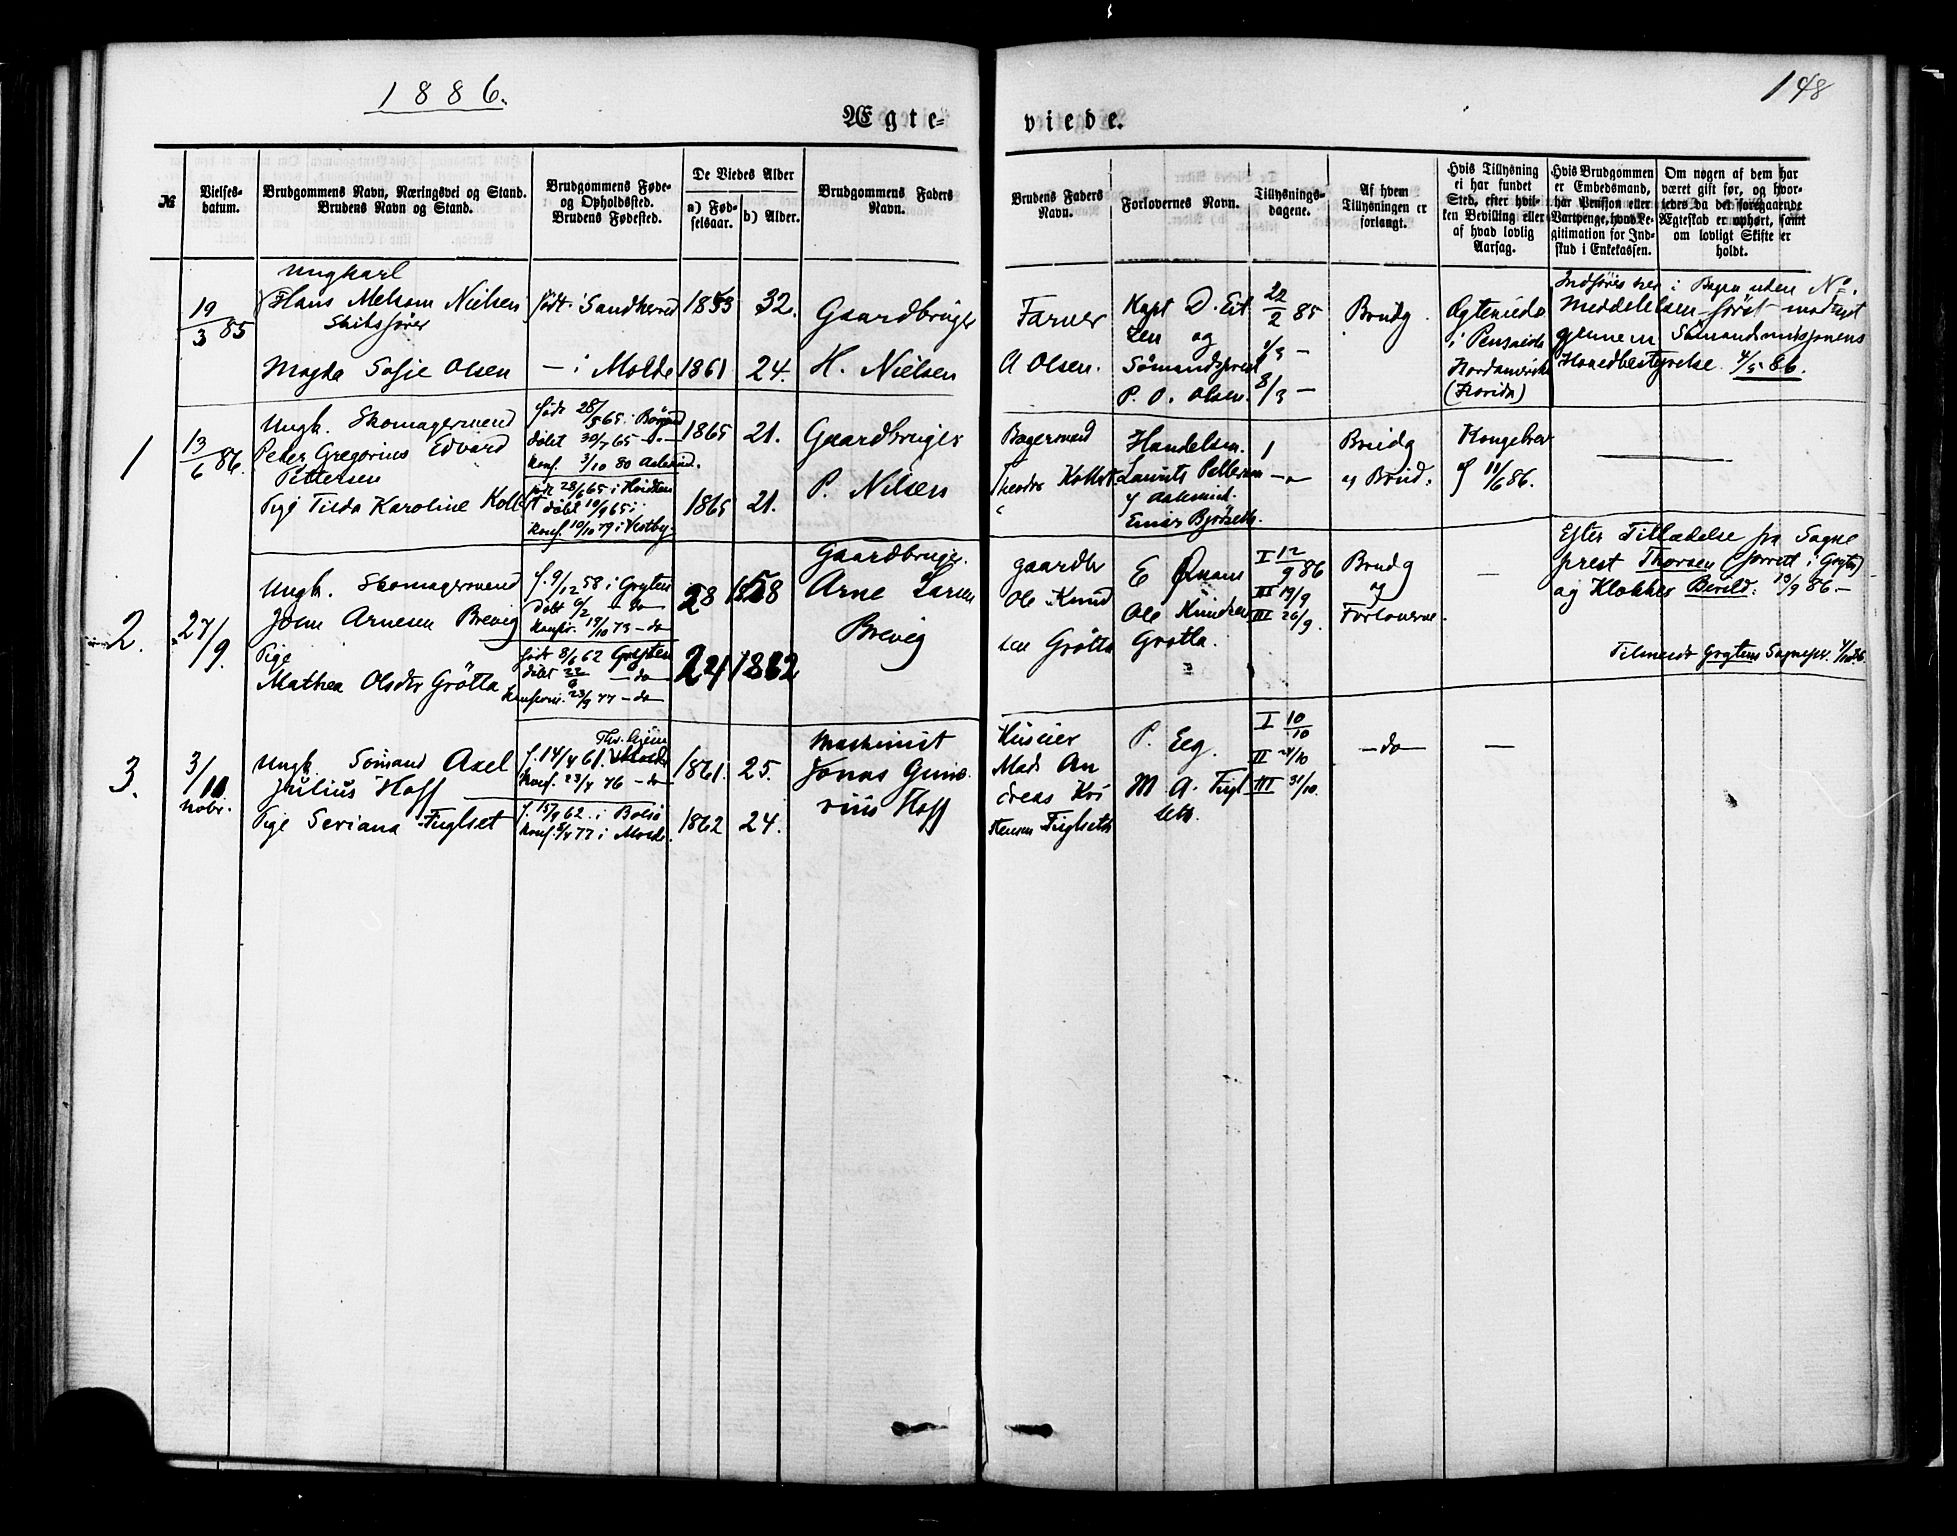 1886.
148
Ægte-
viede.
№
Vielses-
datum.
Brudgommens Navn, Næringsvei og Stand.
Brudens Navn og Stand.
Brudgommens Føde-
og Opholdssted.
Brudens Fødested.
De Viedes Alder
a) Fød-
selsaar.
b) Alder.
Brudgommens Faders
Navn.
Brudens Faders
Navn.
Forlovernes Navn.
Tillysnings-
dagene.
Af hvem
Tillysningen er
forlangt.
Hvis Tillysning
ei har fundet
Sted, efter hvil-
ken Bevilling eller
af hvad lovlig
Aarsag.
Hvis Brudgommen
er Embedsmand,
har Pension eller
Vartpenge, hvad Le-
gitimation for Ind-
skud i Enkekassen.
Om nogen af dem har
været gift før, og hvor-
ledes da det foregaaende
Ægteskab er ophørt, samt
om lovligt Skifte er
holdt.
19/3 85
Ungkarl
Hans Melsom Nielsen
Skibsfører
født i Sandherred
1853
32.
Gaardbruger
H. Nielsen
Magda Sofie Olsen
— i Molde
1861
24.
Farver
A Olsen.
Kapt D. Eit
zen og
Sømandsprest
P. O. Olsen.
22/2 85
1/3 —
8/3 —
Brudg.
Ægteviede
i Pensacola
Nordamerika
(Florida)
Indføres her i Bogen uden No.
Meddelelsen først modtaget
gjennem Sømandsmissionens
Hovedbestyrelse 4/5 86.
1
13/6 86.
Ungk. Skomagersvend
Peter Gregorius Edvard
Pettersen
født 28/5 65 i Borgund
døbt 30/7 65 — do —
konf. 3/10 80 Aalesund.
1865
21.
Gaardbruger
P. Nilsen
Pige Tilda Karoline Kolt
født 28/6 65 i Hvidsten
døbt 10/9 65 i
konf. 10/10 79 i Vestby.
1865
21.
Bagersvend
Theodor
Handelsm.
Laurits Pettersen
af Aalesund.
Einar Bjørseth.
Brudg
og Brud.
Kongebrev
af 11/6 86.
2.
27/9.
Ungk. Skomagersvend
Joen Arnesen Brevig
f. 9/12 58 i Grytten
døbt — do
konfir. 19/10 73 — do
28
1858
Gaardbruger
Arne Larsen
Brevig
Pige
Mathea Olsdtr Grøtta
født 8/6 62 Grytten
døbt 22/6 — do
konfirm. 23/9 77 — do —
24
1862
gaardbr
Ole Knud
sen Grøtta
E Qvam
Ole Knudsen
Grøtta.
I 12/9 86
III 19/9
III 26/9.
Brudg
og
Forloverne.
—
Efter Tilladelse fra Sogne
prest Thorsen (forrett i Grytten)
og Klokker Birkeld. 13/9 86.—
Tilmeldt Gryttens Sognepr.
3.
3/11
Novbr.
Ungk Sømand Axel
Julius Hoff
f. 14/4 61. Molde
konf. 23/4 76 — do
1861.
25.
Maskinist
Jonas Guno
rius Hoff
Pige Seriana Fuglset
f. 15/9 62. i Bolsø
konf. 8/4 77 i Molde.
1862
24.
Huseier
Mads An
dreas Kri
stensen Fuglseth
P. Eeg.
M. A. Fugl
seth.
I 10/10
II 24/10
III 31/10.
— do —
—